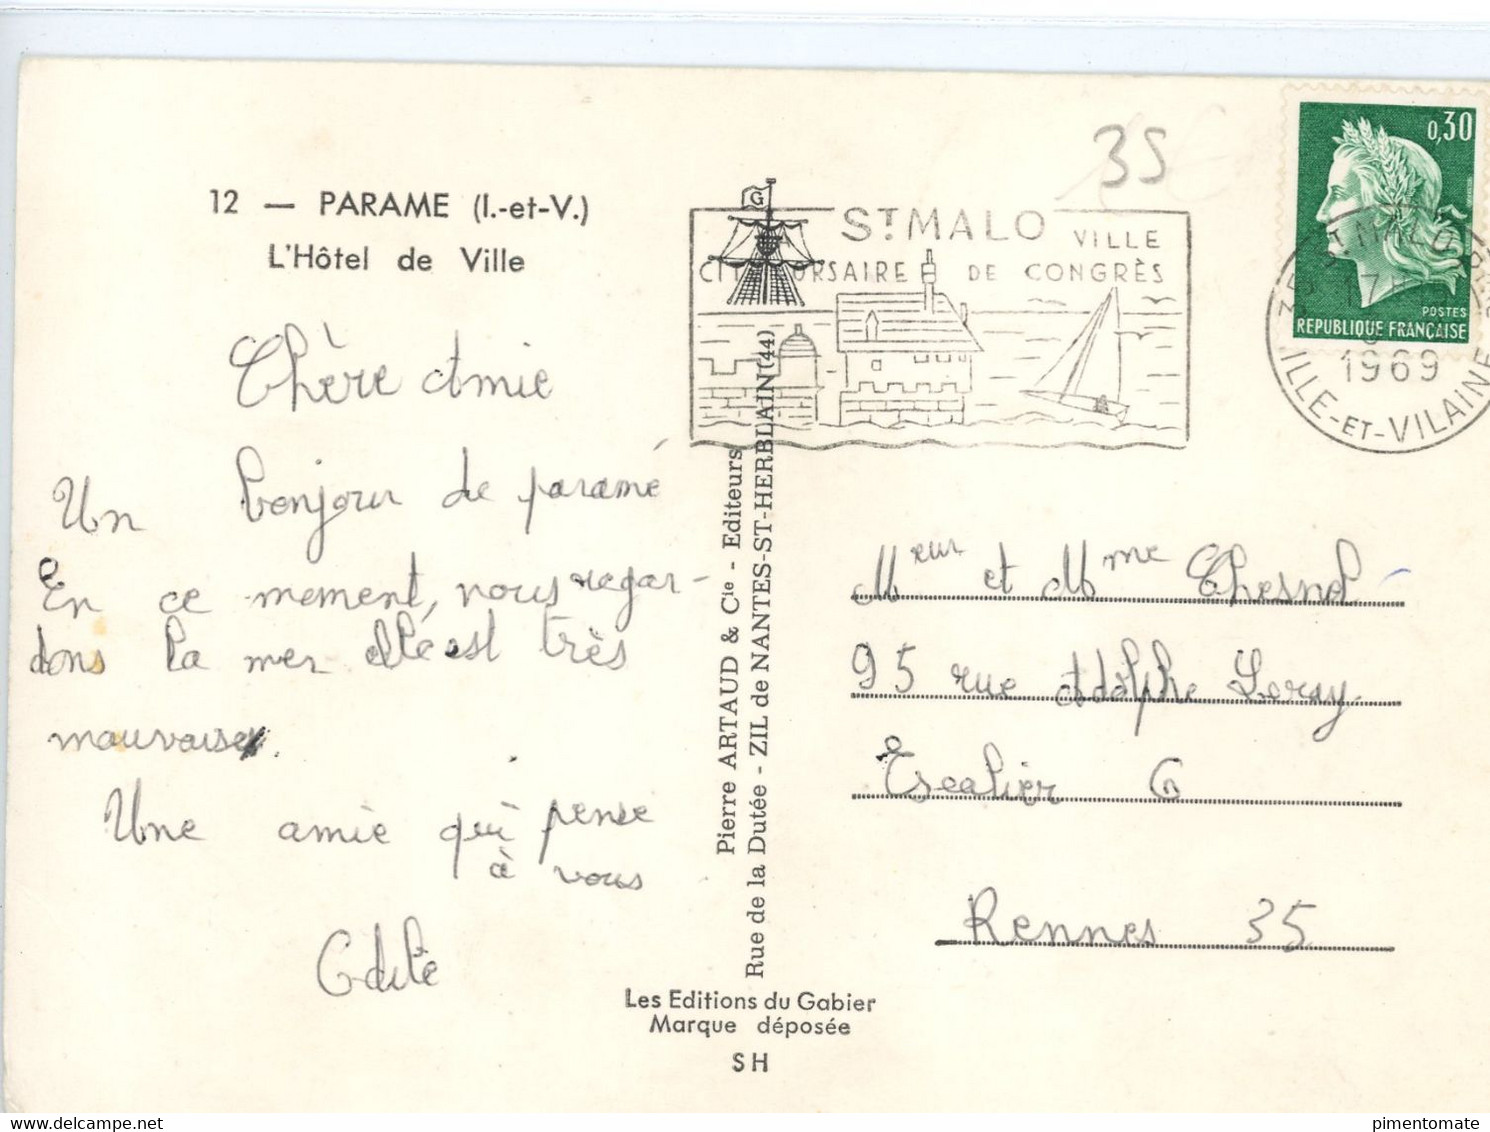 35
0,30
POSTES
REPUBLIQUE FRANÇAISE
12 — PARAME (I.-et-V.)
L'Hôtel de Ville
G
ST MALO VILLE
DE CONGRÈS
1969
ILLE-ET-VILAINE
Chère Amie
Un bonjour de paramé
En ce mement, nous regar-
dons la mer elle est très
mauvaise.
Une amie qui pense
à vous
Odile
Pierre ARTAUD & Cie - Editeurs
Rue de la Dutée - ZIL de NANTES-ST-HERBLAIN (44)
Meur et Mme Chesnel
95 rue Adolphe Leray
Escalier G
Rennes 35
Les Editions du Gabier
Marque déposée
SH
pimentomate